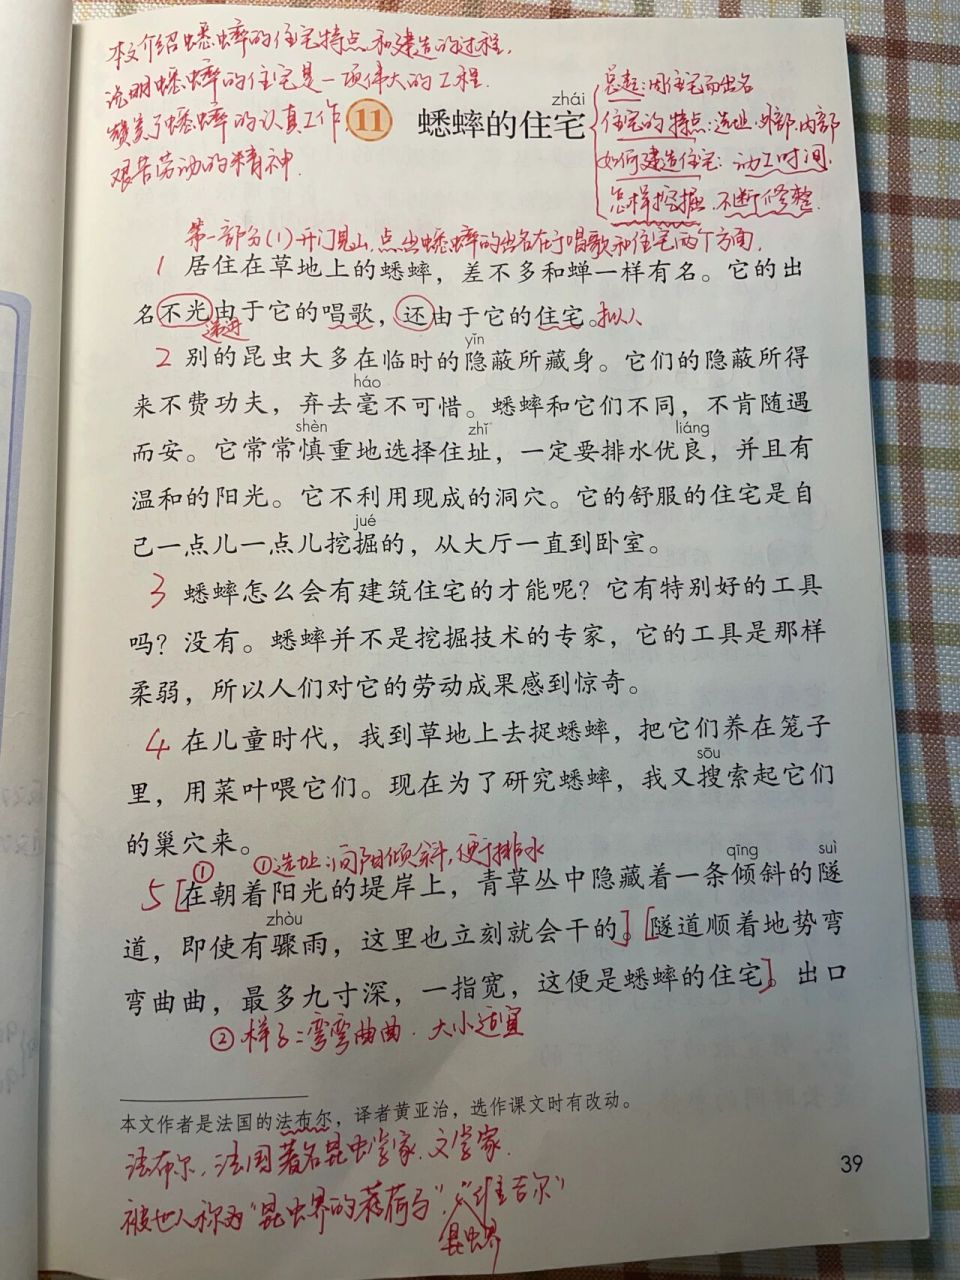 本文介绍蟋蟀的住宅特点和建造的过程,
说明蟋蟀的住宅是一项伟大的工程.
赞美了蟋蟀的认真工作,
艰苦劳动的精神.
11 蟋蟀的住宅
zhái
总起:因住宅而出名
住宅的特点:选址.外部.内部
如何建造住宅:动工时间.
怎样挖掘.不断修整.
第一部分(1)开门见山,点出蟋蟀的出名在于唱歌和住宅两个方面.
1 居住在草地上的蟋蟀，差不多和蝉一样有名。它的出
名不光由于它的唱歌，还由于它的住宅。拟人
递进
yǐn
2 别的昆虫大多在临时的隐蔽所藏身。它们的隐蔽所得
háo
来不费功夫，弃去毫不可惜。蟋蟀和它们不同，不肯随遇
shèn zhǐ liáng
而安。它常常慎重地选择住址，一定要排水优良，并且有
温和的阳光。它不利用现成的洞穴。它的舒服的住宅是自
jué
己一点儿一点儿挖掘的，从大厅一直到卧室。
3 蟋蟀怎么会有建筑住宅的才能呢？它有特别好的工具
吗？没有。蟋蟀并不是挖掘技术的专家，它的工具是那样
柔弱，所以人们对它的劳动成果感到惊奇。
4 在儿童时代，我到草地上去捉蟋蟀，把它们养在笼子
sōu
里，用菜叶喂它们。现在为了研究蟋蟀，我又搜索起它们
的巢穴来。
①选址:向阳倾斜,便于排水
① qīng suì
5 [在朝着阳光的堤岸上，青草丛中隐藏着一条倾斜的隧
zhòu
道，即使有骤雨，这里也立刻就会干的。] [隧道顺着地势弯
弯曲曲，最多九寸深，一指宽，这便是蟋蟀的住宅。] 出口
②样子:弯弯曲曲.大小适宜
本文作者是法国的法布尔，译者黄亚治，选作课文时有改动。
法布尔,法国著名昆虫学家.文学家.
39
被世人称为"昆虫界的荷马".维吉尔"
昆虫界